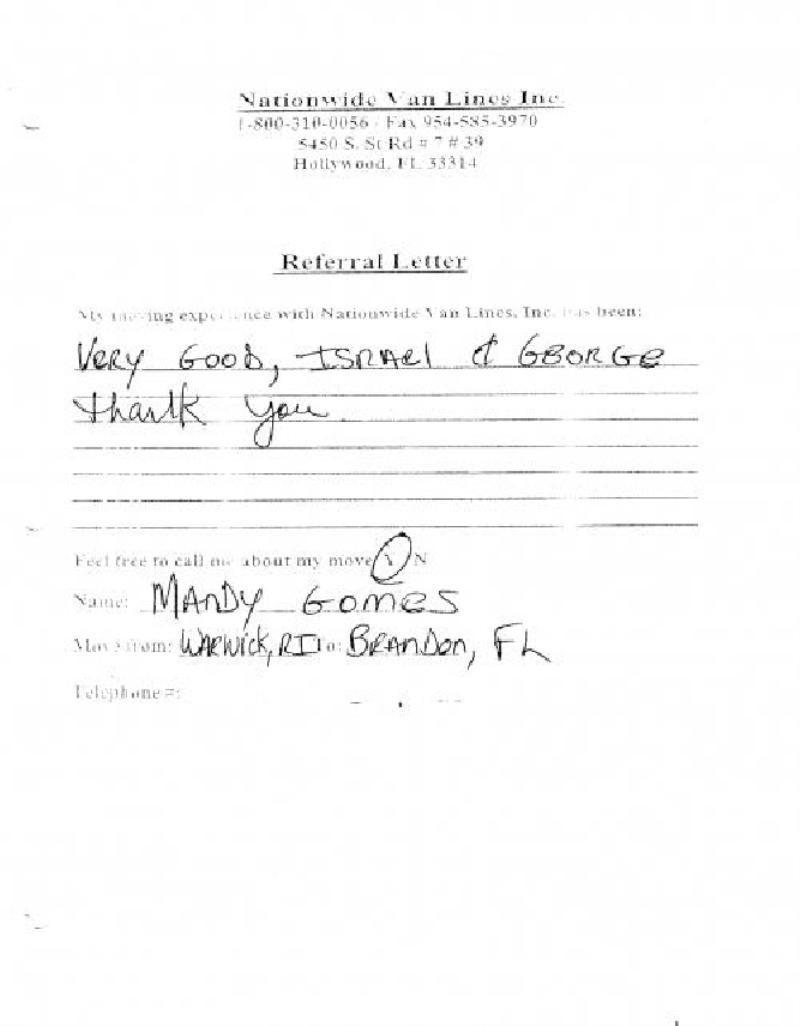 Nationwide Van Lines Inc.
1-800-310-0056 / Fax 954-585-3970
5450 S. St Rd # 7 # 39
Hollywood, FL 33314
Referral Letter
My moving experience with Nationwide Van Lines, Inc. has been:
Very Good, Israel & George
thank you
Feel free to call me about my move Y/N
Name: Mandy Gomes
Move from: Warwick, RI To: Brandon, FL
Telephone #: